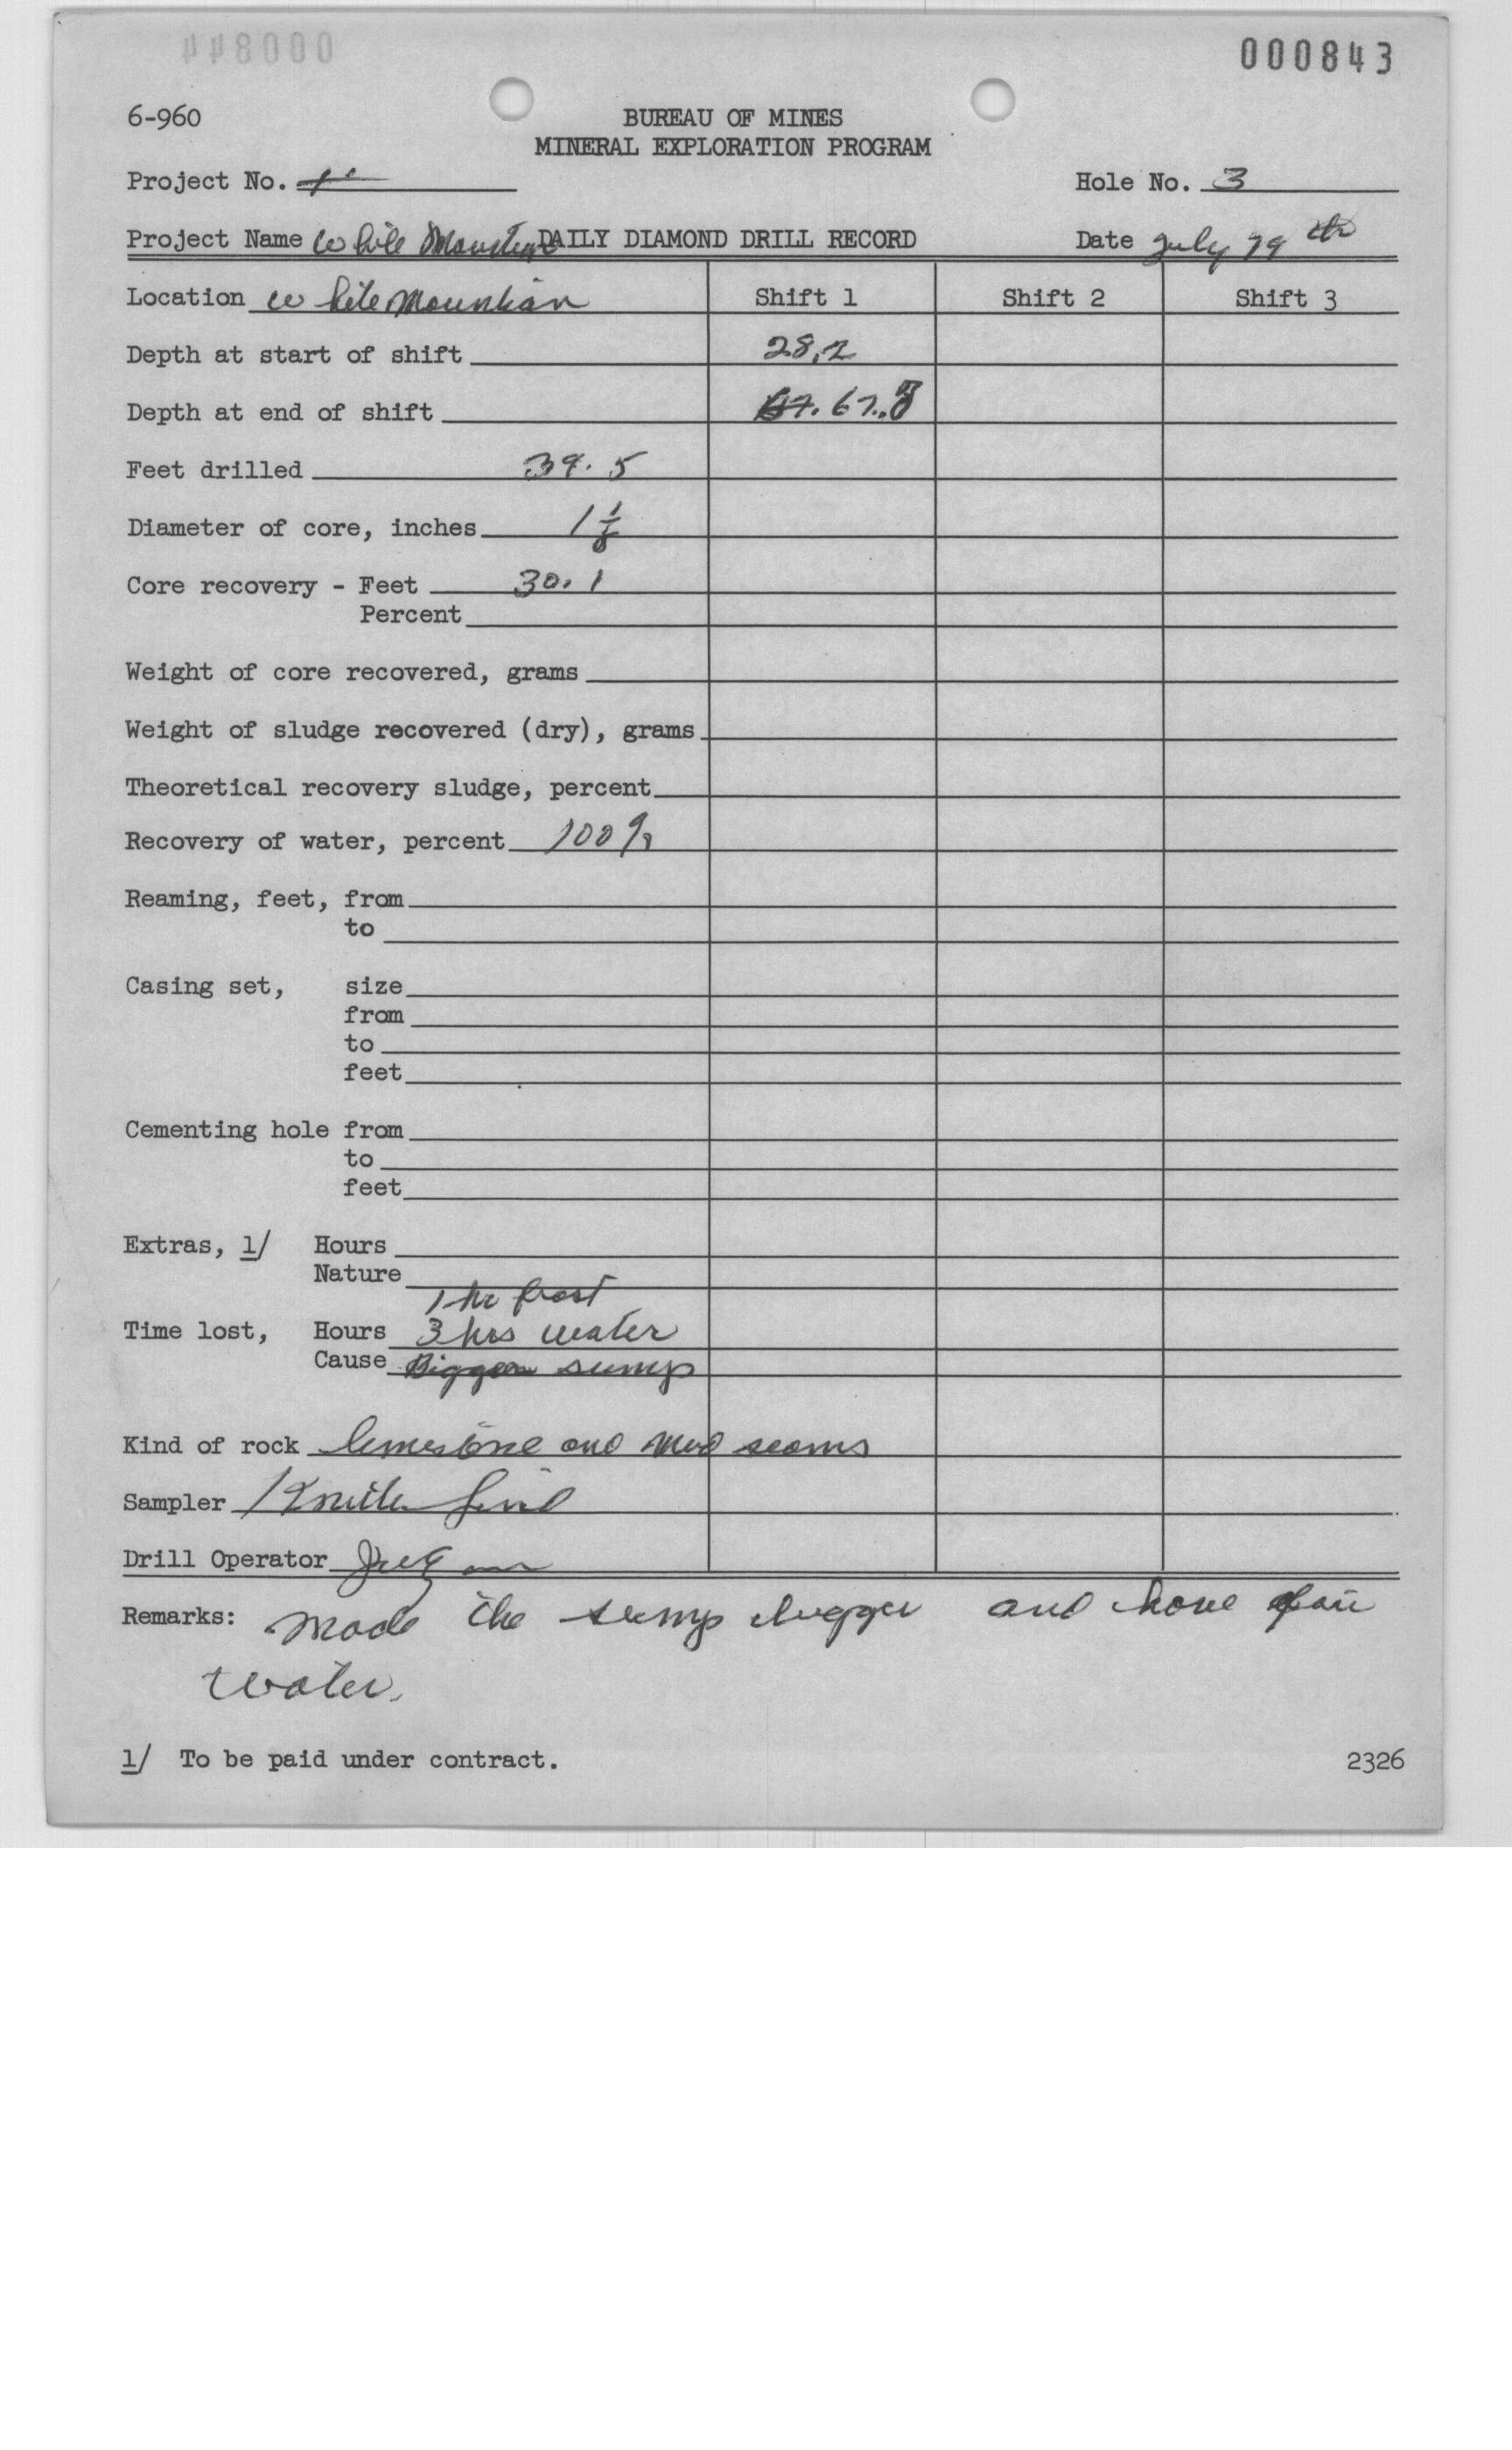 000843
6-960
BUREAU OF MINES
MINERAL EXPLORATION PROGRAM
Project No.
Hole No. 3
Project Name White Mountian DAILY DIAMOND DRILL RECORD
Date July 29 th
Location White Mountian Shift 1 Shift 2 Shift 3
Depth at start of shift 28.2
Depth at end of shift 67.7
Feet drilled 39.5
Diameter of core, inches 1 1/8
Core recovery - Feet 30.1
Percent
Weight of core recovered, grams
Weight of sludge recovered (dry), grams
Theoretical recovery sludge, percent
Recovery of water, percent 100%
Reaming, feet, from
to
Casing set, size
from
to
feet
Cementing hole from
to
feet
Extras, 1/ Hours
Nature
1 hr frost
Time lost, Hours 3 hrs water
Cause Bigger sump
Kind of rock limestone and mud seams
Sampler
Drill Operator
Remarks: Made the sump bigger and have fair
water.
1/ To be paid under contract.
2326